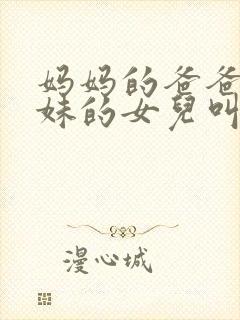 妈妈的爸爸
妹的女兒叫
漫心城